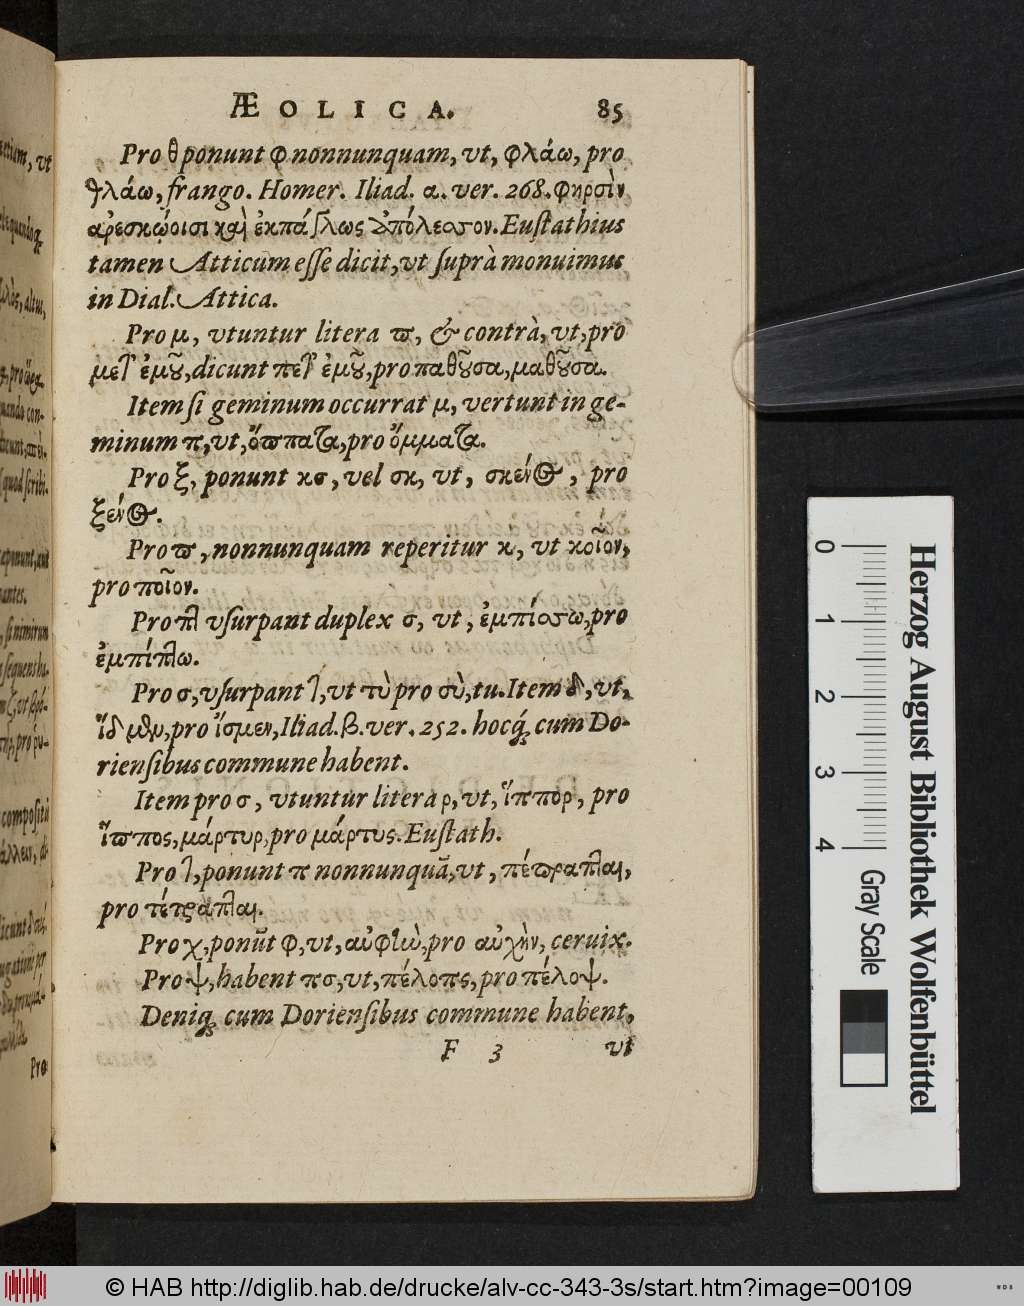 ÆOLICA. 85
Pro θ ponunt φ nonnunquam, vt, φλάω, pro
θλάω, frango. Homer. Iliad. α. ver. 268. φηρσὶν
ἀρεσκῴοισι καὶ ἐκπάγλως ἀπόλεσσον. Euſtathius
tamen Atticum eſſe dicit, vt ſuprà monuimus
in Dial. Attica.
Pro μ, vtuntur litera ϖ, & contrà, vt, pro
μετ' ἐμοῦ, dicunt πετ' ἐμοῦ, pro παθοῦσα, μαθοῦσα.
Item ſi geminum occurrat μ, vertunt in ge-
minum π, vt, ὄϖπατα, pro ὄμματα.
Pro ξ, ponunt κσ, vel σκ, vt, σκένος, pro
ξένος.
Pro ϖ, nonnunquam reperitur κ, vt κοῖον,
pro ποῖον.
Pro πλ vſurpant duplex σ, vt, ἐμπίσσω, pro
ἐμπίπλω.
Pro σ, vſurpant τ, vt τὺ pro σὺ, tu. Item δ, vt,
ἴδμεν, pro ἴσμεν, Iliad. β. ver. 252. hocq́; cum Do-
rienſibus commune habent.
Item pro σ, vtuntur litera ρ, vt, ἵππορ, pro
ἵϖπος, μάρτυρ, pro μάρτυς. Euſtath.
Pro τ, ponunt π nonnunquã, vt, πέϖραπλαι,
pro τέτραπλαι.
Pro χ, ponũt φ, vt, αὐφὴν, pro αὐχὴν, ceruix.
Pro ψ, habent πσ, vt, πέλοπς, pro πέλοψ.
Deniq; cum Dorienſibus commune habent,
F 3 vt
Pro
0 1 2 3 4
Gray Scale
Herzog August Bibliothek Wolfenbüttel
© HAB http://diglib.hab.de/drucke/alv-cc-343-3s/start.htm?image=00109